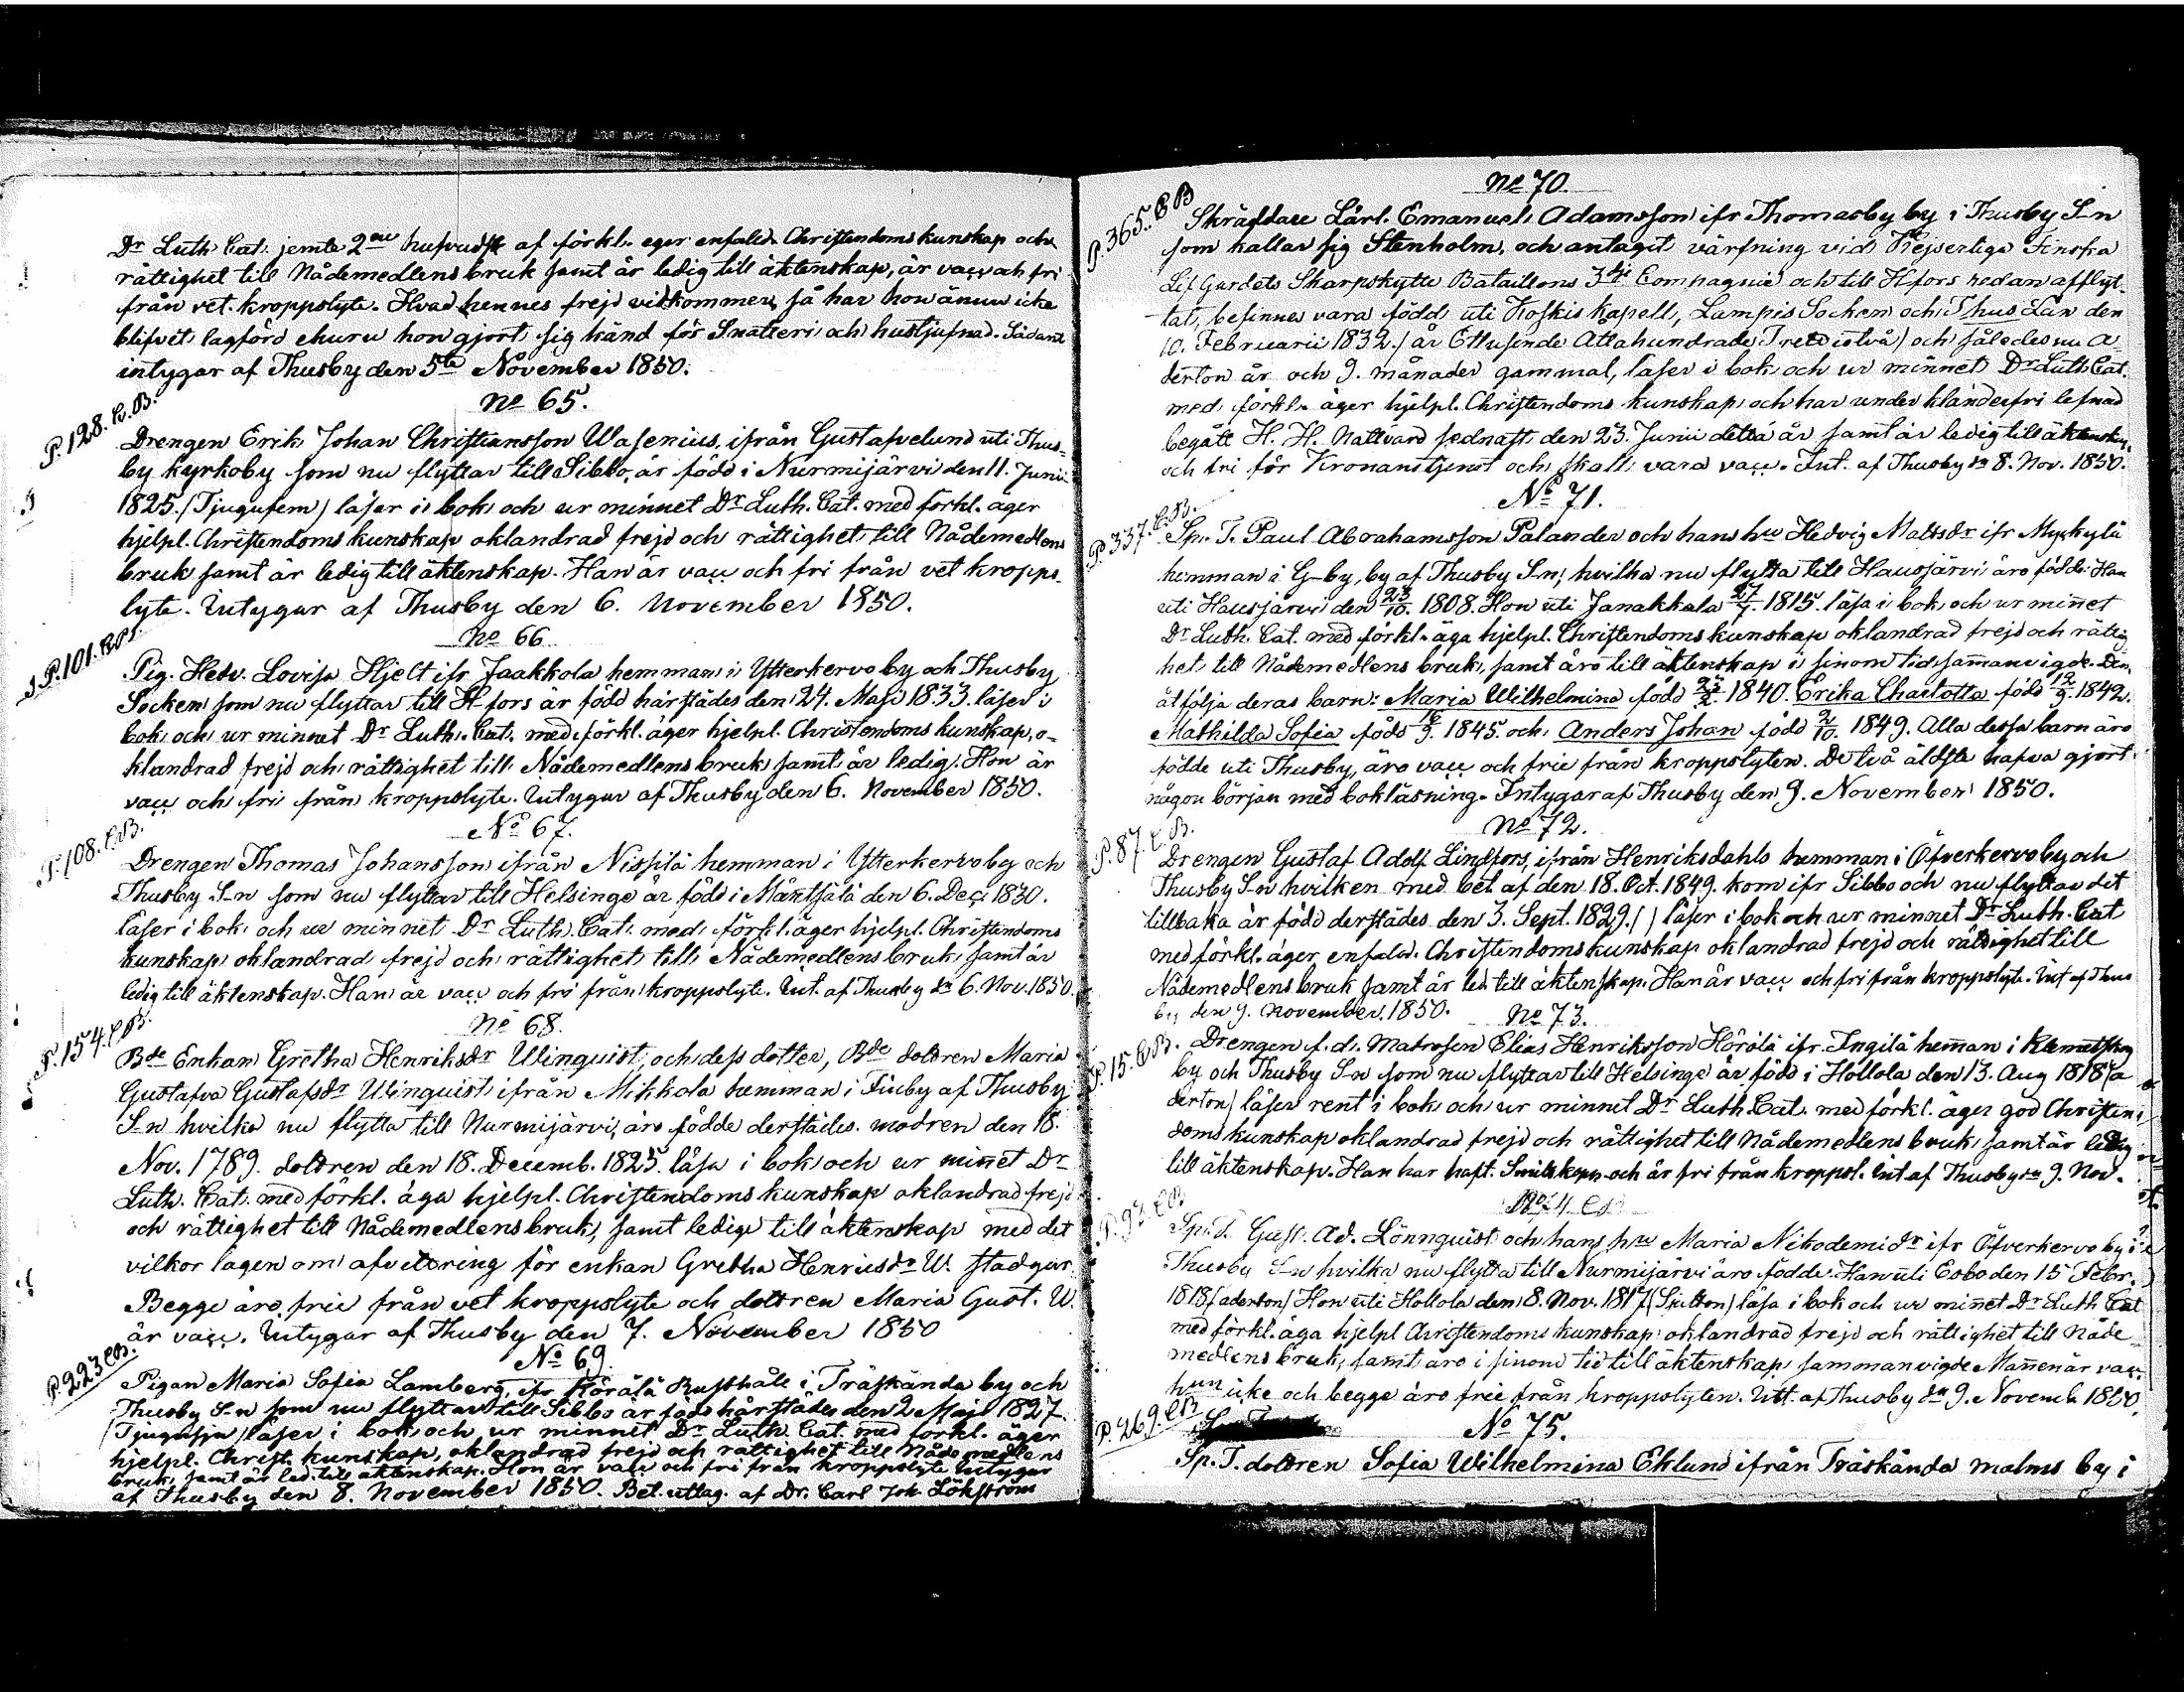 Dr Luth. Cat. jemte 2ne hufvudst af förkl. eger enfaled. Christendoms kunskap och
rättighet till Nådemedlens bruk samt är ledig till äktenskap, är vacc och fri
från vet. kroppslyte. Hvad hennes frejd vidkommer, så har hon ännu icke
blifvit lagförd ehuru hon gjort sig känd för Snatteri och hustjufnad. Sådant
intygar af Thusby den 5te November 1850.
P. 128. C.B.
No 65.
Drengen Erik Johan Christiansson Wasenius, ifrån Gustafvelund uti Thus-
by kyrkoby som nu flyttar till Sibbo, är född i Nurmijärvi den 11. Junii
1825. (Tjugufem) läser i bok och ur minnet Dr Luth. Cat. med förkl. äger
hjelpl. Christendoms kunskap oklandrad frejd och rättighet till Nådemedlens
bruk samt är ledig till äktenskap. Han är vacc och fri från vet kropps-
lyte. Intygar af Thusby den 6. November 1850.
P. 101. C.B.
No 66
Pig. Hedv. Lovisa Hjelt ifr Jaakkola hemman i Ytterkervo by och Thusby
Socken som nu flyttar till H-fors är född härstädes den 24. Maji 1833. läser i
bok och ur minnet Dr Luth. Cat. med förkl. äger hjelpl. Christendoms kunskap, o-
klandrad frejd och rättighet till Nådemedlens bruk samt är ledig. Hon är
vacc och fri från kroppslyte. Intygar af Thusby den 6. November 1850.
P. 108. C.B.
No 67.
Drengen Thomas Johansson ifrån Nissilä hemman i Ytterkervo by och
Thusby S-n som nu flyttar till Helsinge är född i Mäntsälä den 6. Dec. 1830.
läser i bok och ur minnet Dr Luth. Cat. med förkl. äger hjelpl. Christendoms
kunskap oklandrad frejd och rättighet till Nådemedlens bruk samt är
ledig till äktenskap. Han är vacc och fri från kroppslyte. Int. af Thusby dn 6. Nov. 1850.
P. 154. C.B.
No 68.
Bde Enkan Gretha Henriksdr Winquist, och dess dotter, Bde dottren Maria
Gustafva Gustafsdr Winquist ifrån Mikkola hemman i Finby af Thusby
S-n hvilka nu flytta till Nurmijärvi, äro födde derstädes. modren den 18.
Nov. 1789. dottren den 18. Decemb. 1825. läsa i bok och ur minnet Dr
Luth. Cat. med förkl. äga hjelpl. Christendoms kunskap oklandrad frejd
och rättighet till Nådemedlens bruk, samt ledige till äktenskap med det
vilkor lagen om afvittring för enkan Gretha Henricsdr W. stadgar.
Begge äro frie från vet kroppslyte och dottren Maria Gust. W.
är vacc. Intygar af Thusby den 7. November 1850
P. 223 C.B.
No 69.
Pigan Maria Sofia Lamberg, ifr Hörälä Rusthåll i Träskända by och
Thusby S-n som nu flyttar till Sibbo är född härstädes den 2 Maji 1827.
(Tjugusju) läser i bok och ur minnet Dr Luth. Cat. med förkl. äger
hjelpl. Christ. kunskap, oklandrad frejd och rättighet till Nådemedlens
bruk, samt är led. till äktenskap. Hon är vacc och fri från kroppslyte Intygar
af Thusby den 8. November 1850. Bet. uttag. af Dr. Carl Joh. Löfström
P. 365. C B
No 70.
Skräddare Lärl. Emanuel Adamsson ifr Thomasby by i Thusby S-n
som kallar sig Stenholm, och antagit värfning vid Kejserliga Finska
Lif Gardets Skarpskytte Bataillons 3dje Compagnie och till H-fors redan afflyt-
tat, befinnes vara född uti Koskis kapell, Lampis Socken och T-hus Län den
10. Februarii 1832. (år Ettusende Åttahundrade Trettiotvå) och således nu a
derton år och 9. månader gammal, läser i bok och ur minnet Dr Luth. Cat.
med förkl. äger hjelpl. Christendoms kunskap och har under klanderfri lefnad
begått H. H. Nattvard sednast den 23. Junii detta år samt är ledig till äktenskap,
och fri för Kronans tjenst och skall vara vacc. Int. af Thusby dn 8. Nov. 1850.
P. 337. C.B.
No 71.
Sp. T. Paul Abrahamsson Palander och hans hu Hedvig Matsdr ifr Myllkylä
hemman i G-by, by af Thusby S-n, hvilka nu flytta till Hausjärvi äro födde. Han
uti Hausjärvi den 23/10. 1808. Hon uti Janakkala 27/7. 1815. läsa i bok och ur minnet
Dr Luth. Cat. med förkl. äga hjelpl. Christendoms kunskap oklandrad frejd och rättig-
het till Nådemedlens bruk, samt äro till äktenskap i sinom tid sammanvigde. Dem
åtfölja deras barn: Maria Wilhelmina född 22/2. 1840. Erika Charlotta född 12/9. 1842.
Mathilda Sofia född 16/9. 1845. och Anders Johan född 2/10. 1849. Alla dessa barn äro
födde uti Thusby, äro vacc och frie från kroppslyten. De två äldste hafva gjort
någon början med bokläsning. Intygar af Thusby den 9. November 1850.
P. 87. C.B.
No 72.
Drengen Gustaf Adolf Lindfors, ifrån Henriksdahls hemman i Öfverkervo by och
Thusby S-n hvilken med bet. af den 18. Oct. 1849. kom ifr Sibbo och nu flyttar dit
tillbaka är född derstädes den 3. Sept. 1829. ( ) läser i bok och ur minnet Dr Luth. Cat
med förkl. äger enfaled. Christendomskunskap oklandrad frejd och rättighet till
Nådemedlens bruk samt är led till äktenskap. Han är vacc och fri från kroppslyte. Int af Thus
by den 9. November. 1850.
P. 15. C.B.
No 73.
Drengen f. d. Matrosen Elias Henriksson Hörölä ifr. Ingilä hemman i
by och Thusby S-n som nu flyttar till Helsinge är född i Hollola den 13. Aug 1818 (a
derton) läser rent i bok och ur minnet Dr Luth. Cat. med förkl. äger god Christen-
doms kunskap oklandrad frejd och rättighet till Nådemedlens bruk samt är ledig
till äktenskap. Han har haft och är fri från kroppsl. Int af Thusby dn 9. Nov.
P. 93 C B
Sp. T. Gust. Ad. Lönnquist och hans hu Maria Nikodemidr ifr Öfverkervo by i
Thusby S-n hvilka nu flytta till Nurmijärvi äro födde. Han uti Esbo den 15 Febr.
1818 (aderton) Hon uti Hollola den 8. Nov. 1817 (Sjutton) läsa i bok och ur minnet Dr Luth Cat
med förkl. äga hjelpl Christendoms kunskap oklandrad frejd och rättighet till Nåde-
medlens bruk, samt äro i sinom tid till äktenskap sammanvigde Mannen är vacc.
hun icke och begge äro frie från kroppslyten. Int. af Thusby dn 9. Novemb. 1850.
P. 269. C.B
No 75.
Sp. T. dottren Sofia Wilhelmina Eklund ifrån Träskända malms by i